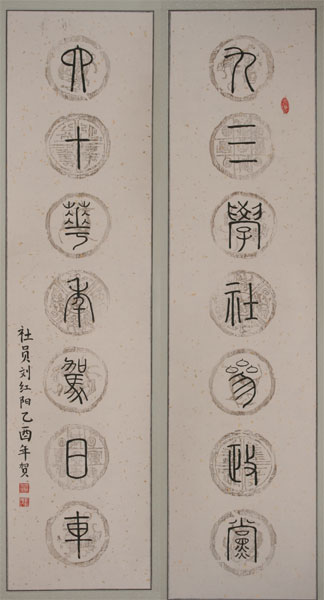 九三學社參政黨
六十華年駕日車
社员刘红阳乙酉年贺